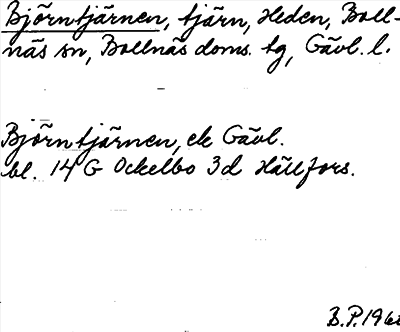 Björntjärnen, tjärn, Heden, Boll-
näs sn, Bollnäs doms. tg, Gävl. l.
Björntjärnen, ek Gävl.
bl. 14 G Ockelbo 3d Hällfors.
B.P.